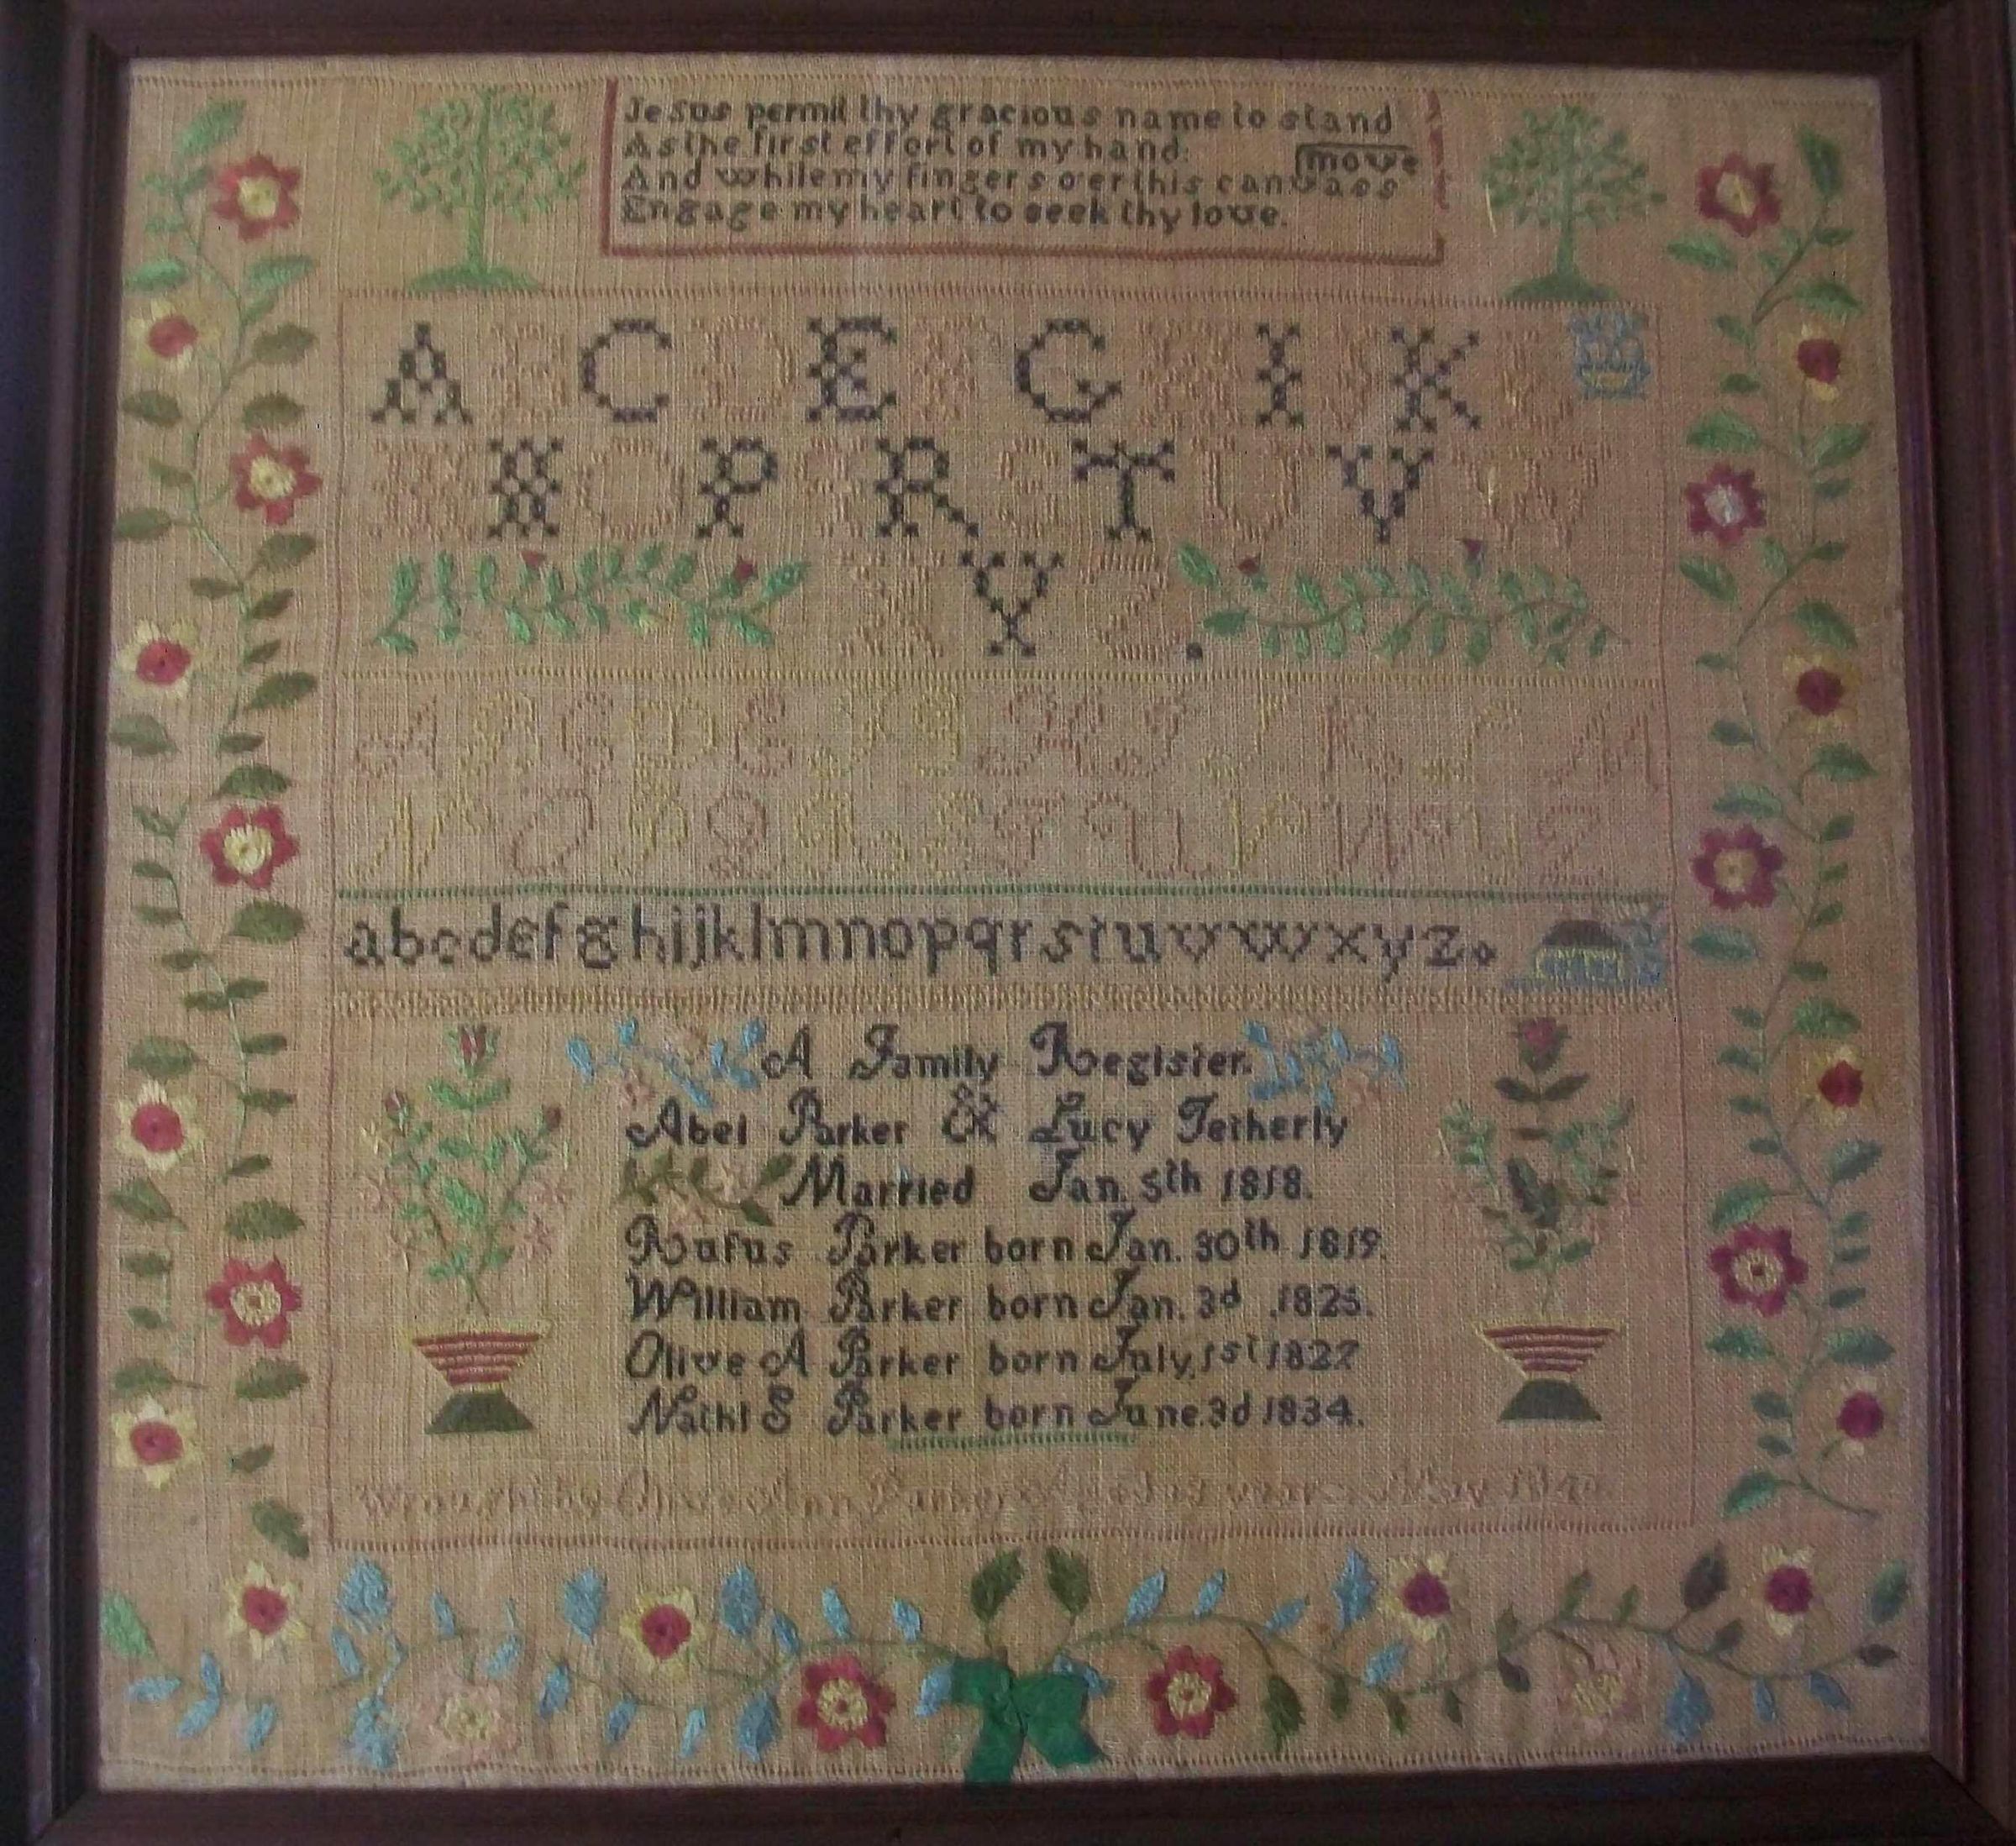 Jesus permit thy gracious name to stand
As the first effort of my hand:
And while my fingers o'er this canvass move
Engage my heart to seek thy love.
A B C D E F G H I J K L
M N O P Q R S T U V W
X Y Z.
A B C D E F G H I J K L M
N O P Q R S T U V W X Y Z
abcdefghijklmnopqrstuvwxyz.
A Family Register.
Abel Parker & Lucy Tetherly
Married Jan. 5th 1818.
Rufus Parker born Jan. 30th 1819.
William Parker born Jan. 3d 1825.
Olive A Parker born July, 1st 1827
Nathl S Parker born June. 3d 1834.
Wrought by Olive Ann Parker Aged years May